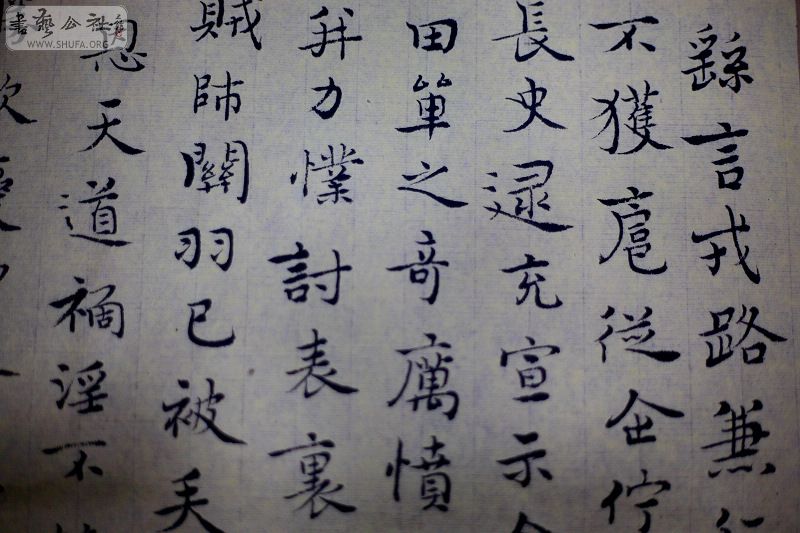 繇言戎路兼行
不獲扈從企佇
長史逯充宣示令
田單之奇厲憤
并力撲討表裏
賊帥關羽已被矢
恩天道禍淫不
書藝公社
WWW.SHUFA.ORG